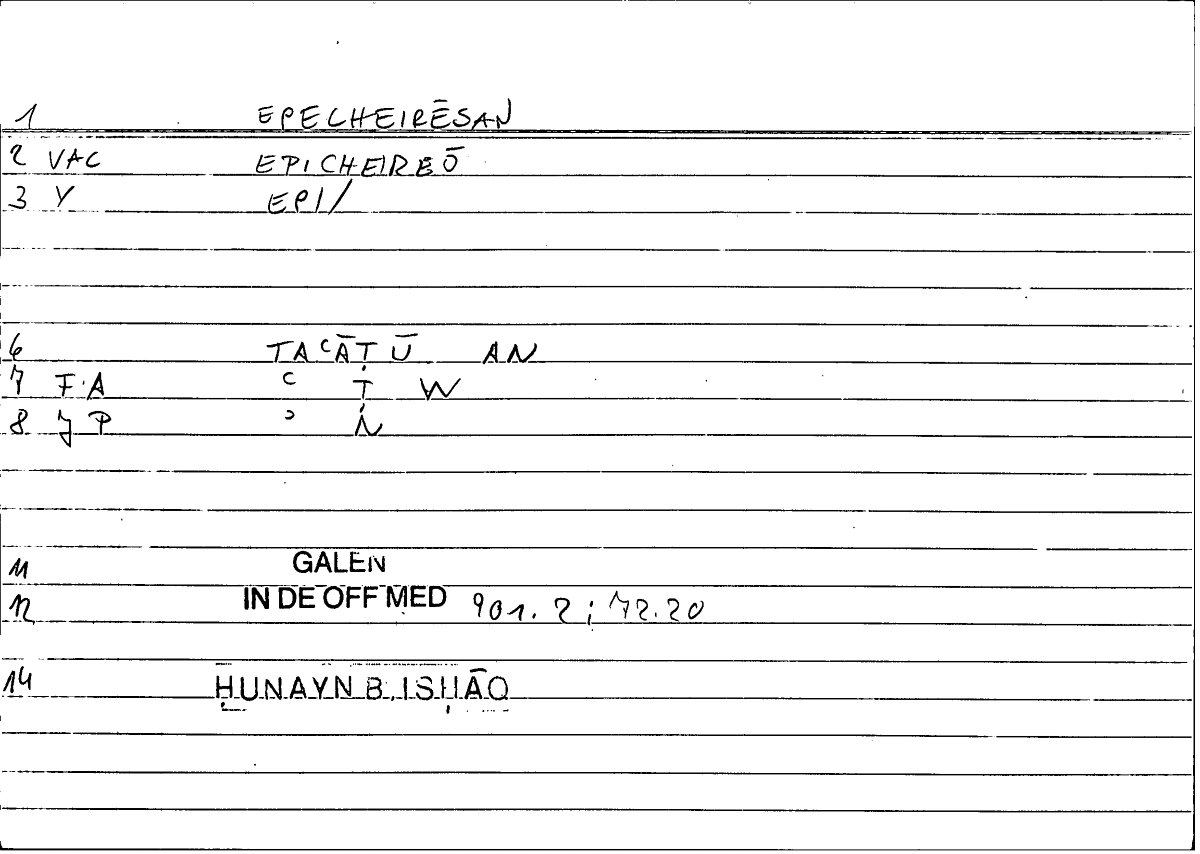 1 EPECHEIRĒSAN
2 VAC EPICHEIREŌ
3 Y EPI/
6 TAᶜĀṬŪ AN
7 F A ᶜ Ṭ W
8 J P ᵓ Ṅ
11 GALEN
12 IN DE OFF MED 901.2; 72.20
14 ḤUNAYN B. ISḤĀQ